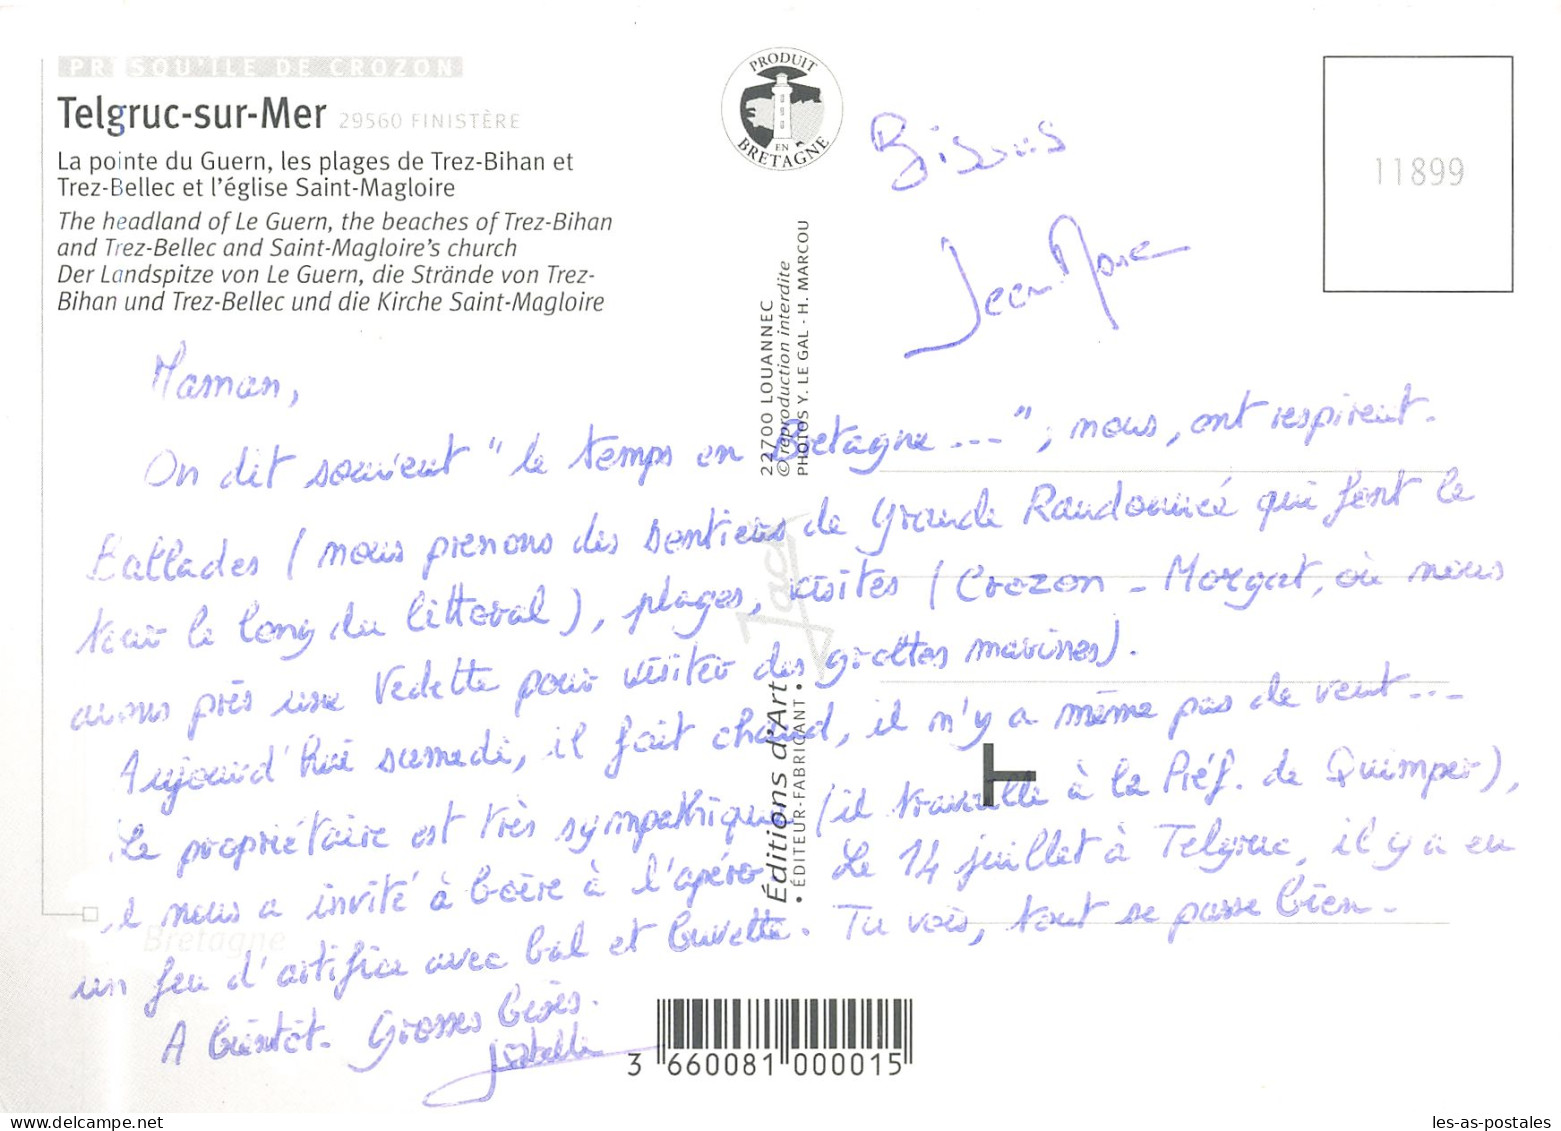 PRESQU'ILE DE CROZON
Telgruc-sur-Mer 29560 FINISTÈRE
La pointe du Guern, les plages de Trez-Bihan et
Trez-Bellec et l'église Saint-Magloire
The headland of Le Guern, the beaches of Trez-Bihan
and Trez-Bellec and Saint-Magloire's church
Der Landspitze von Le Guern, die Strände von Trez-
Bihan und Trez-Bellec und die Kirche Saint-Magloire
PRODUIT
EN
BRETAGNE
11899
Bisous
Jean Marc
22700 LOUANNEC
© reproduction interdite
PHOTOS Y. LE GAL - H. MARCOU
Jack
Éditions d'Art
• ÉDITEUR-FABRICANT •
Maman,
On dit souvent "le temps en Bretagne ---", nous, ont respirent.
Ballades (nous prenons des sentiers de Grande Randonnée qui font le
tour le long du littoral), plages, visites (Crozon - Morgat, où nous
avons près une vedette pour visiter des grottes marines).
Aujourd'hui samedi, il fait chaud, il n'y a même pas de vent ---
Le propriétaire est très sympathique (il travaille à la Préf. de Quimper),
il nous a invité à boire à l'apéro. Le 14 juillet à Telgruc, il y a eu
un feu d'artifice avec bal et buvette. Tu vois, tout se passe bien.
A bientôt. Grosses bises.
Isabelle
Bretagne
3 660081 000015
les-as-postales